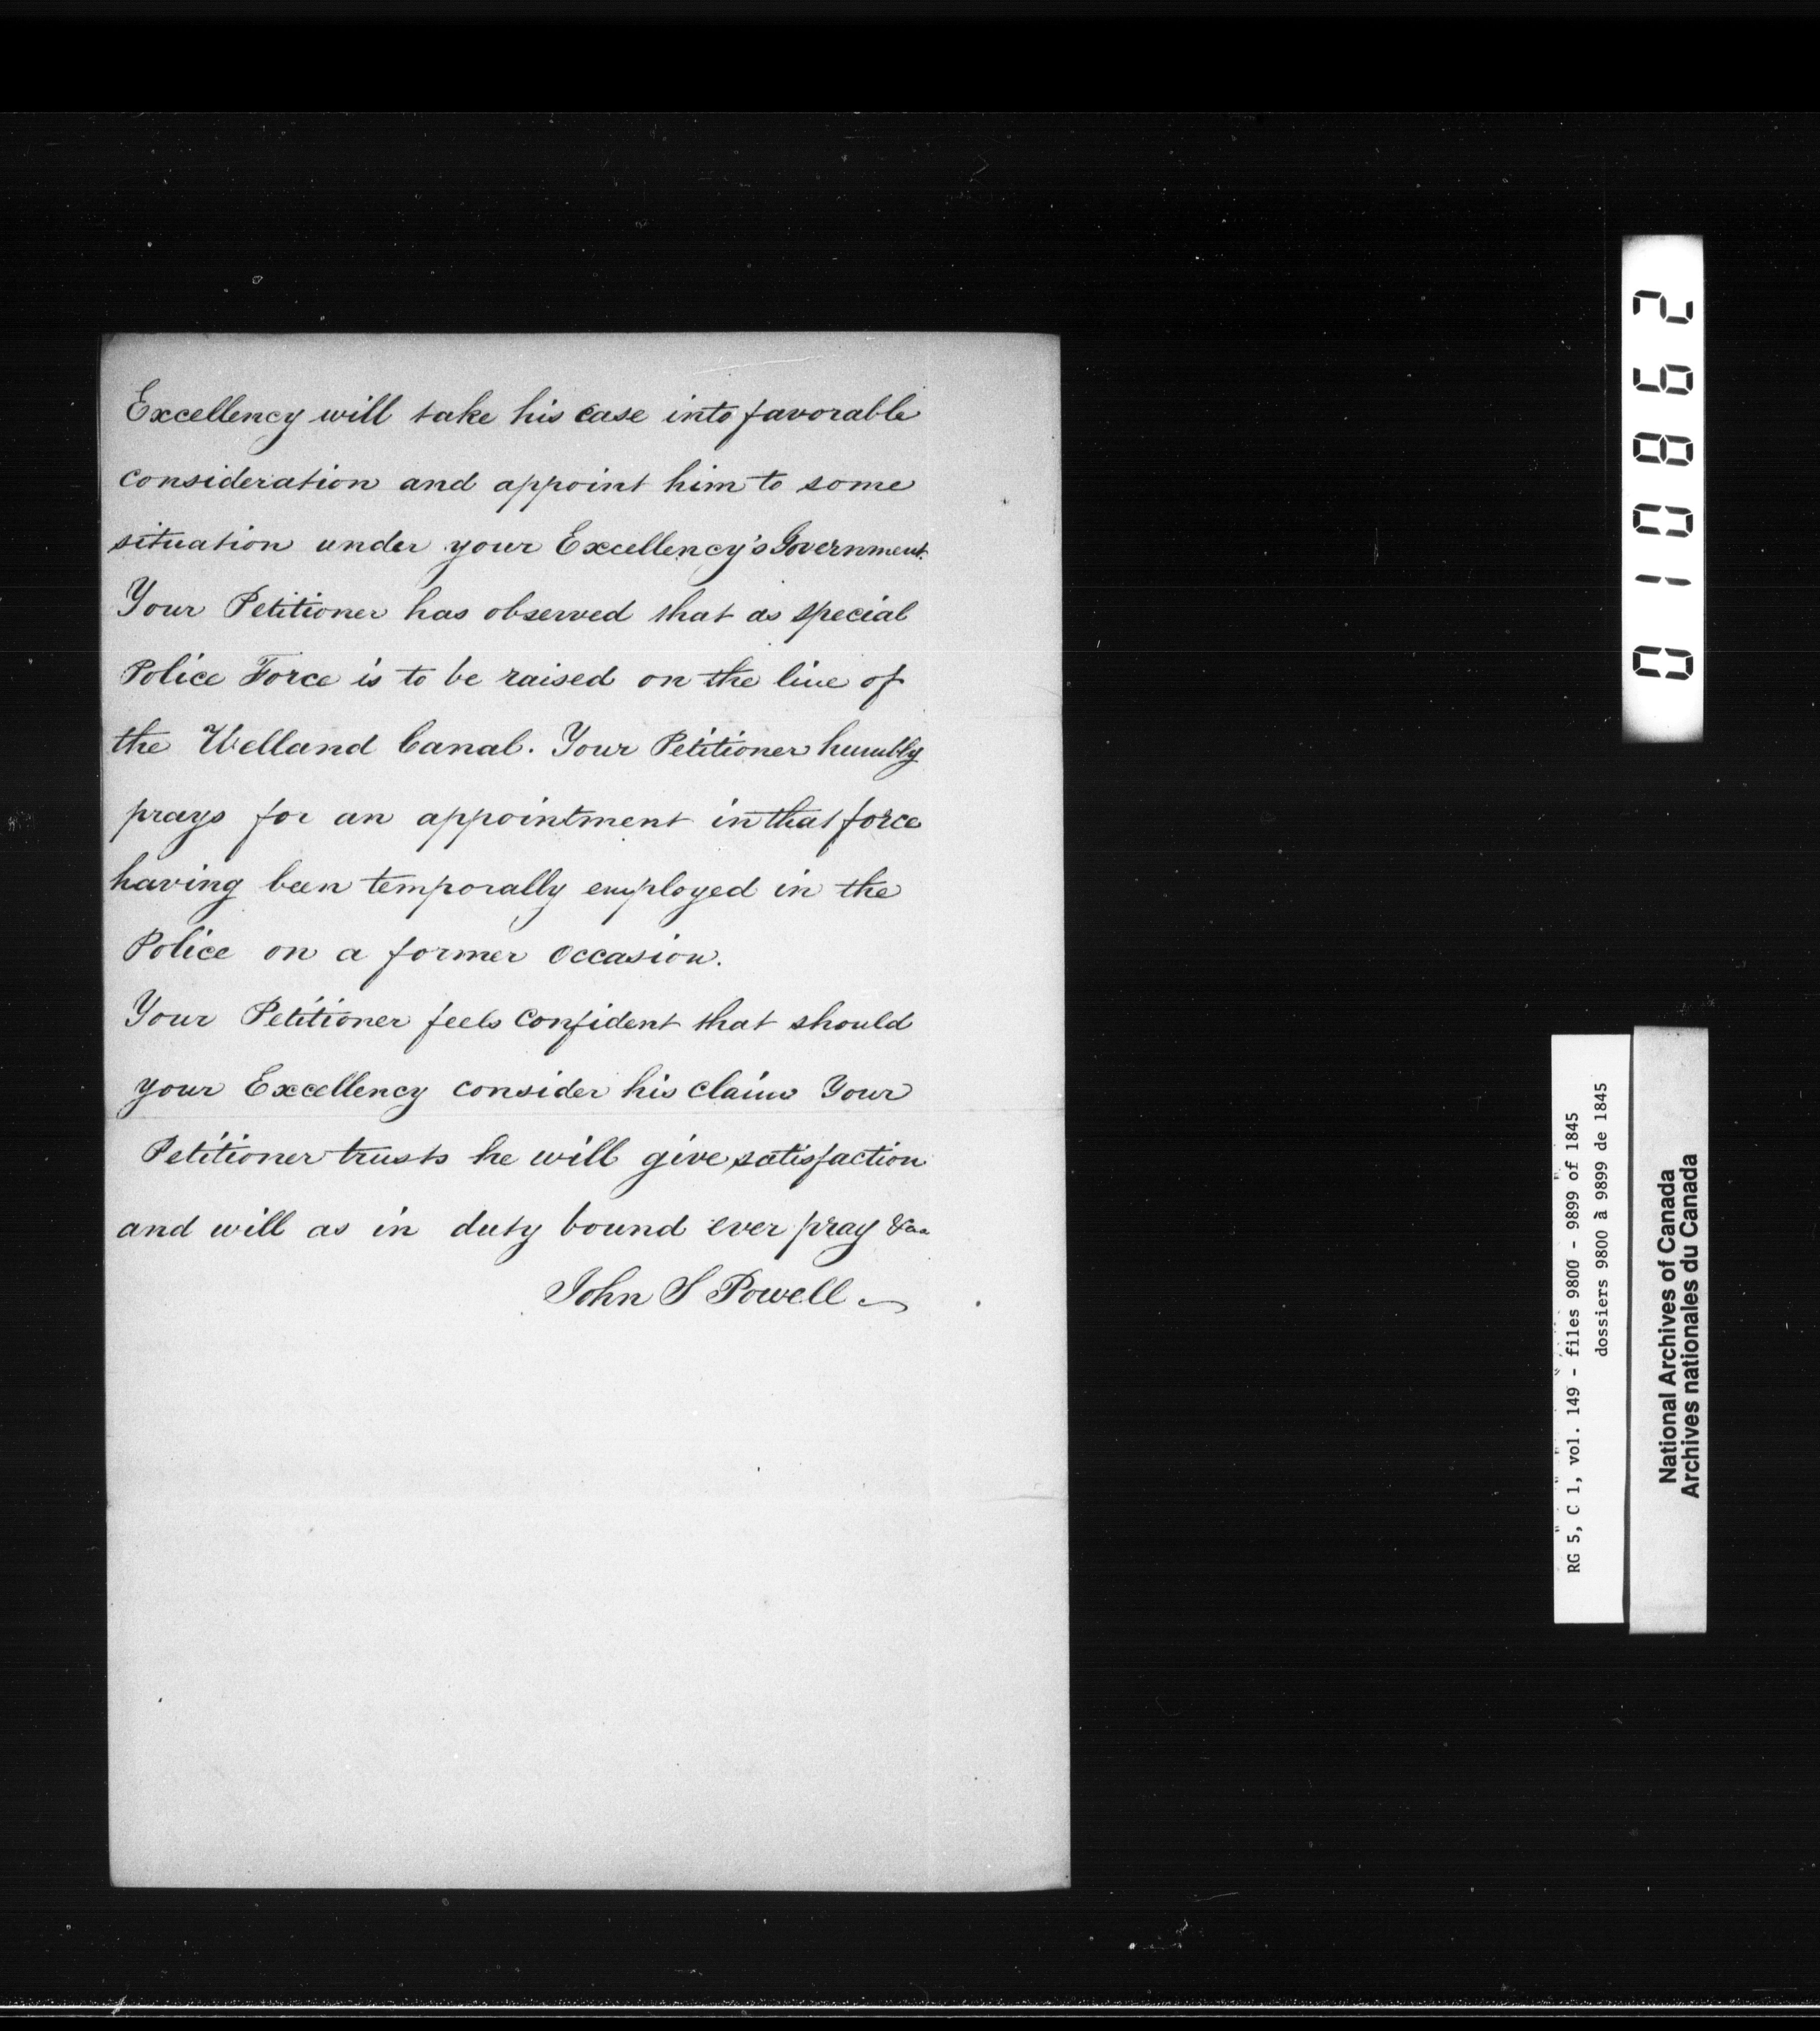 Excellency will take his case into favorable
consideration and appoint him to some
situation under your Excellency's Government.
Your Petitioner has observed that as special
Police Force is to be raised on the line of
the Welland Canal. Your Petitioner humbly
prays for an appointment in that force
having been temporally employed in the
Police on a former occasion.
Your Petitioner feels confident that should
your Excellency consider his claim Your
Petitioner trusts he will give satisfaction
and will as in duty bound ever pray &ca
John S Powell
010862
RG 5, C 1, vol. 149 - files 9800 - 9899 of 1845
dossiers 9800 à 9899 de 1845
National Archives of Canada
Archives nationales du Canada